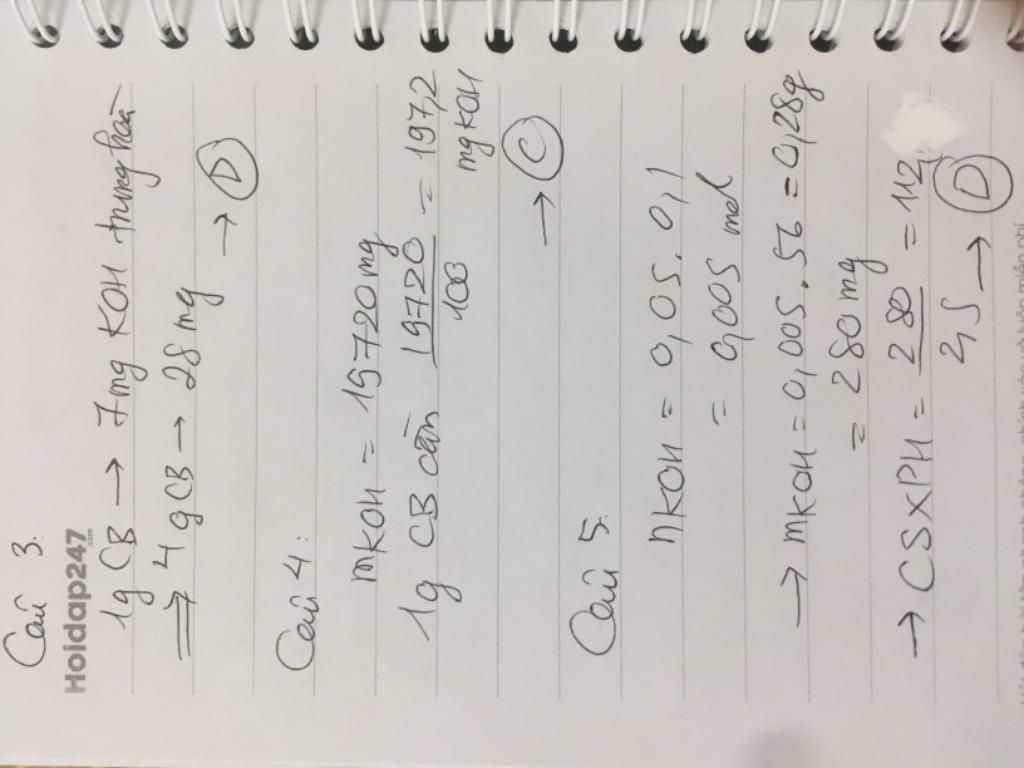 Câu 3:
Hoidap247.com
1g CB → 7mg KOH trung hoà
⇒ 4 g CB → 28 mg
→ D
Câu 4:
mKOH = 19720 mg
1g CB cần 19720/100 = 197,2 mg KOH
→ C
Câu 5:
nKOH = 0,05. 0,1
= 0,005 mol
→ mKOH = 0,005. 56 = 0,28g
= 280 mg
→ CSXPH = 280/2,5 = 112
→ D